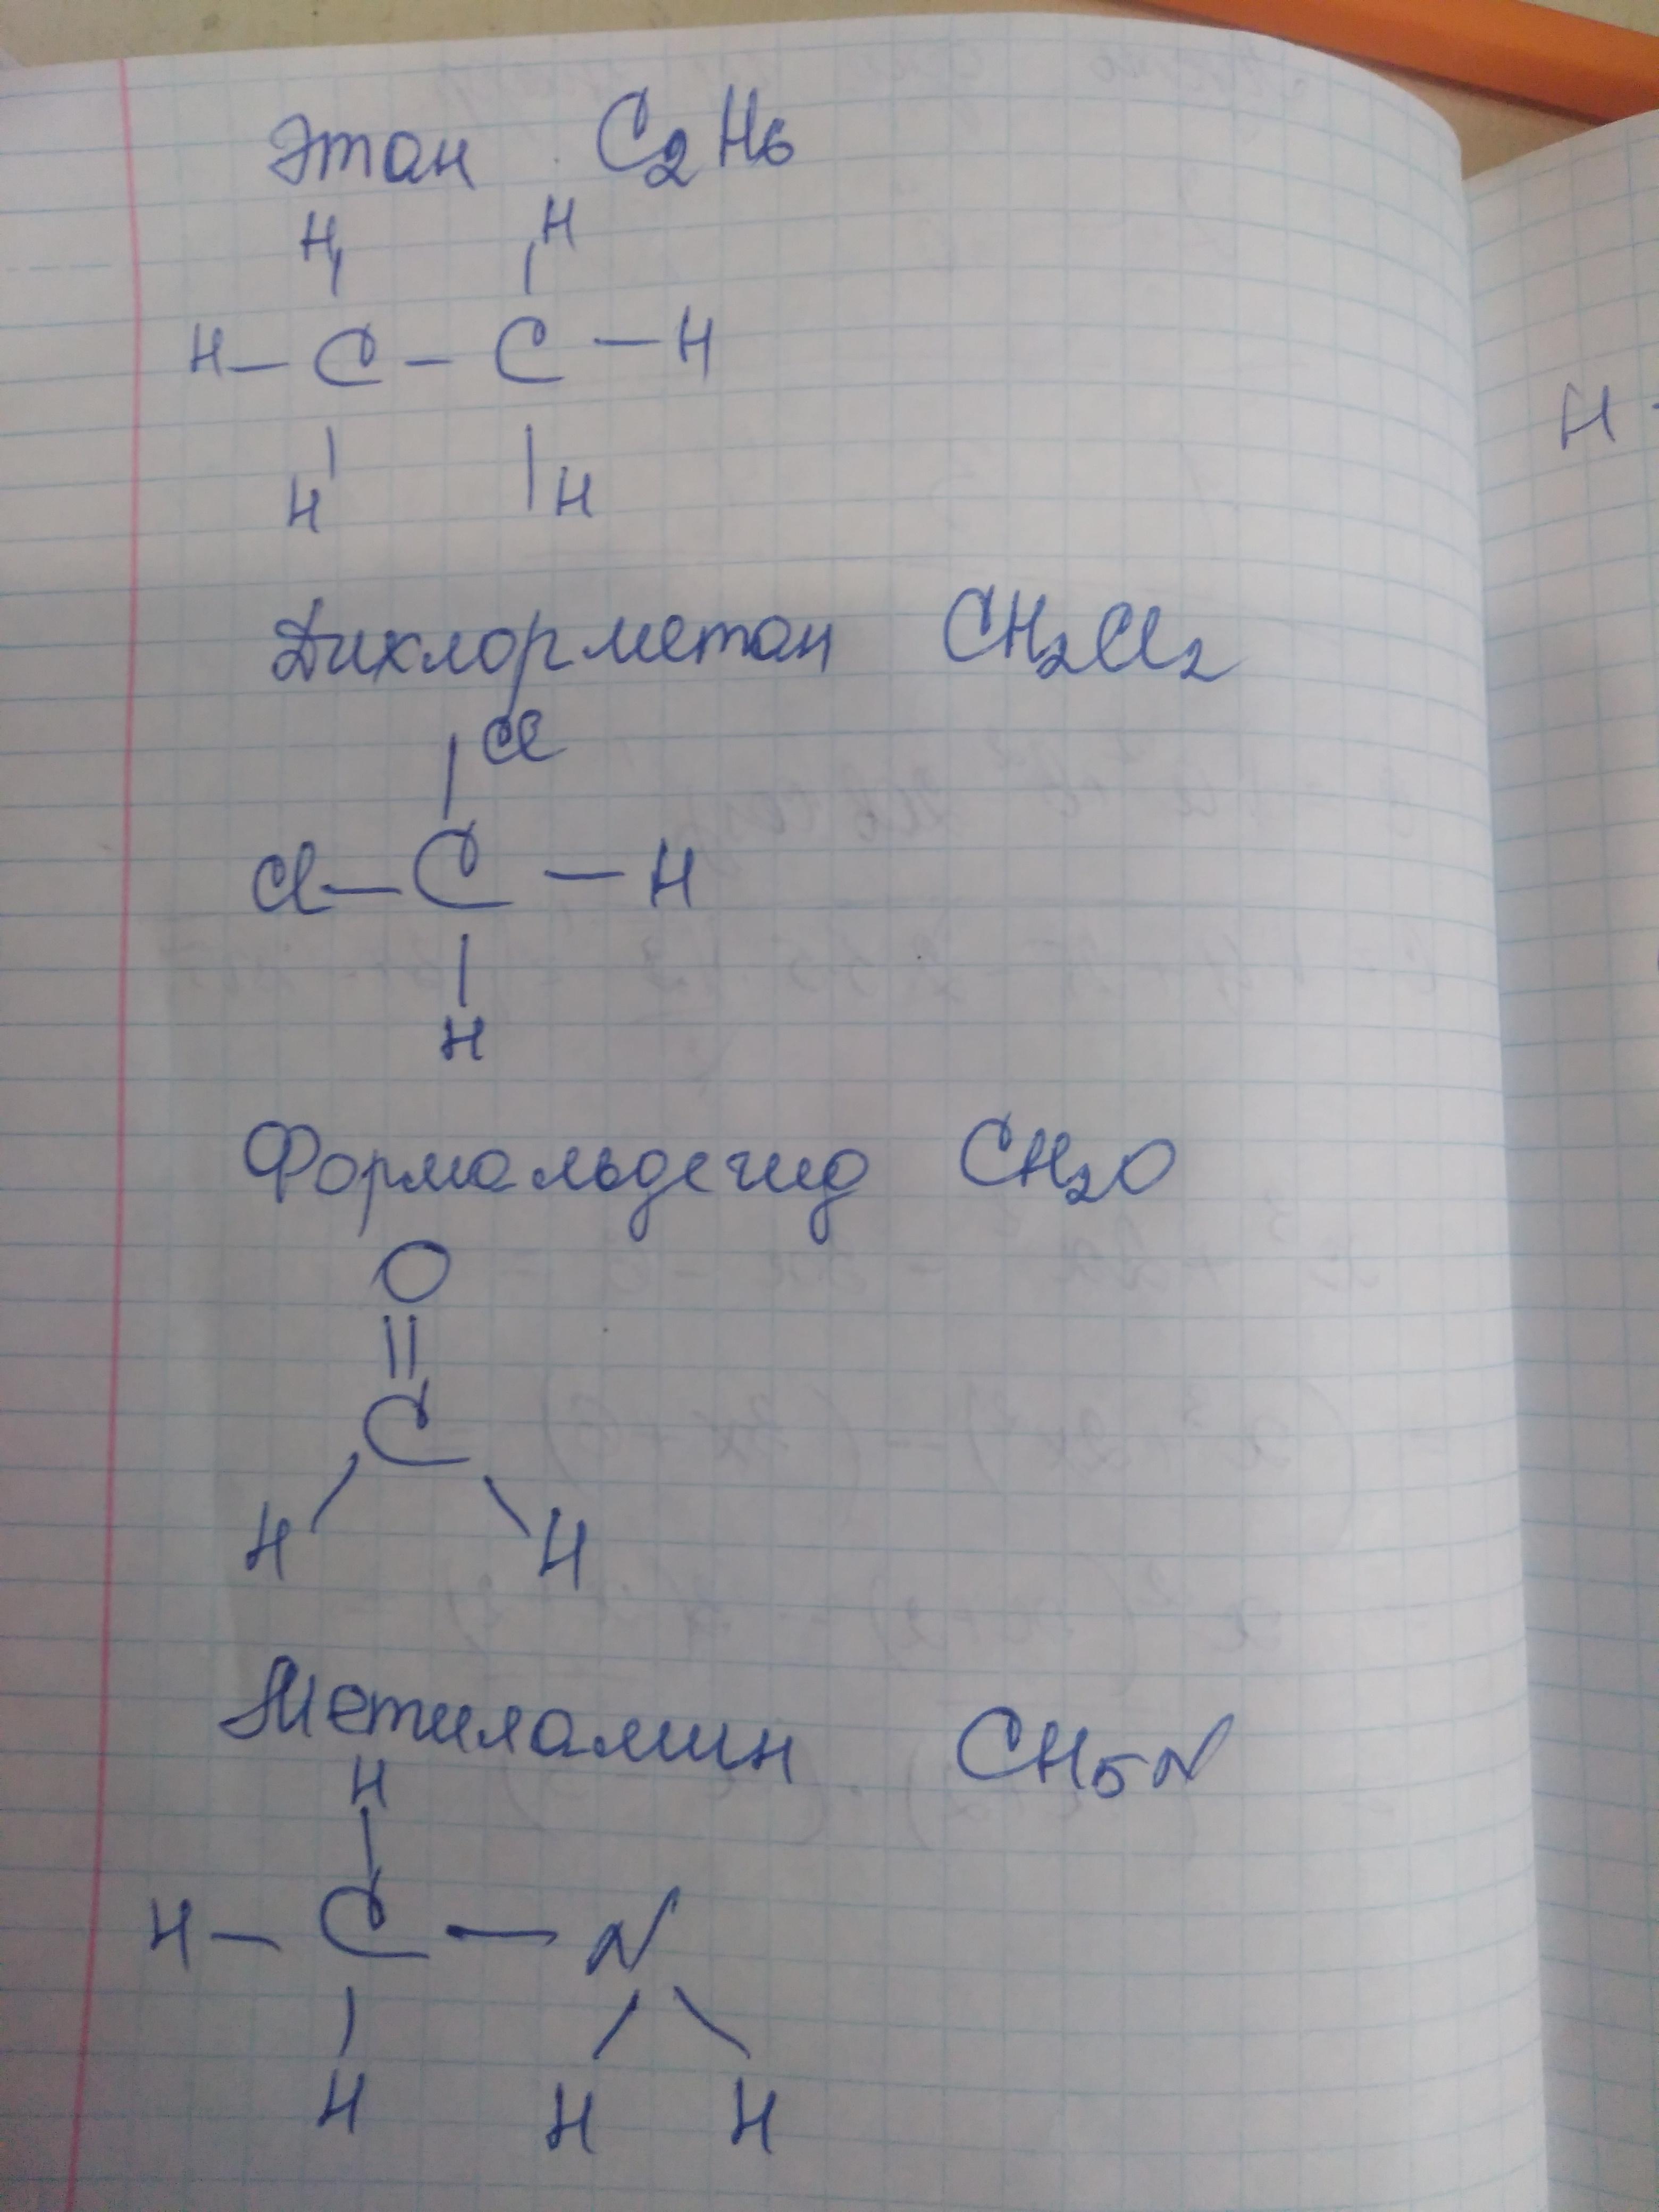 Этан C₂H₆
H H
H – C – C – H
H H
Дихлорметан CH₂Cl₂
Cl
Cl – C – H
H
Формальдегид CH₂O
O
C
H H
Метиламин CH₅N
H
H – C – N
H H H
H